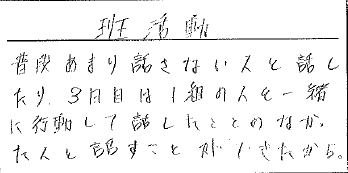 班活動
普段あまり話さない人と話し
たり、3日目は1組の人と一緒
に行動して話したことのなかっ
た人と話すことができたから。